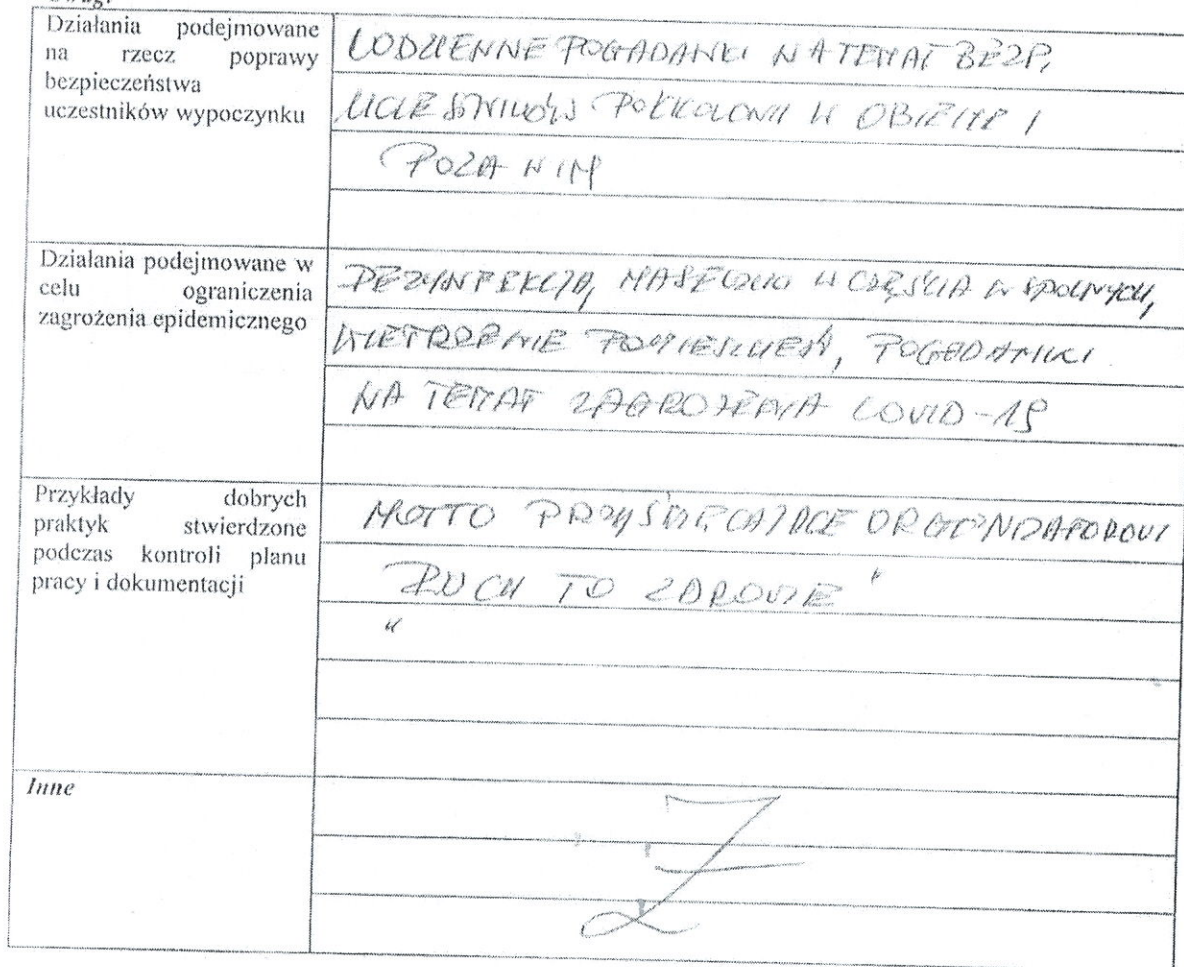 Uwagi
Działania podejmowane
na rzecz poprawy
bezpieczeństwa
uczestników wypoczynku
CODZIENNE POGADANKI NA TEMAT BEZP.
UCZESTNIKÓW PÓŁKOLONII W OBIEKCIE I
POZA NIM
Działania podejmowane w
celu ograniczenia
zagrożenia epidemicznego
DEZYNFEKCJA, MASECZKI W CZĘŚCIA WSPOLNYCH,
WIETRZENIE POMIESZCZEŃ, POGADANKI
NA TEMAT ZAGROŻENIA COVID-19
Przykłady dobrych
praktyk stwierdzone
podczas kontroli planu
pracy i dokumentacji
MOTTO PRZYŚWIECAJĄCE ORGANIZATOROWI
"RUCH TO ZDROWIE"
Inne